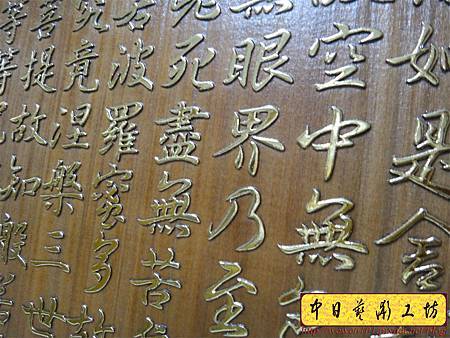 如是舍
空中無
無眼界乃至
死盡無苦
若波羅蜜多故
究竟涅槃三世
菩提故知般
等等
中日藝彫工坊